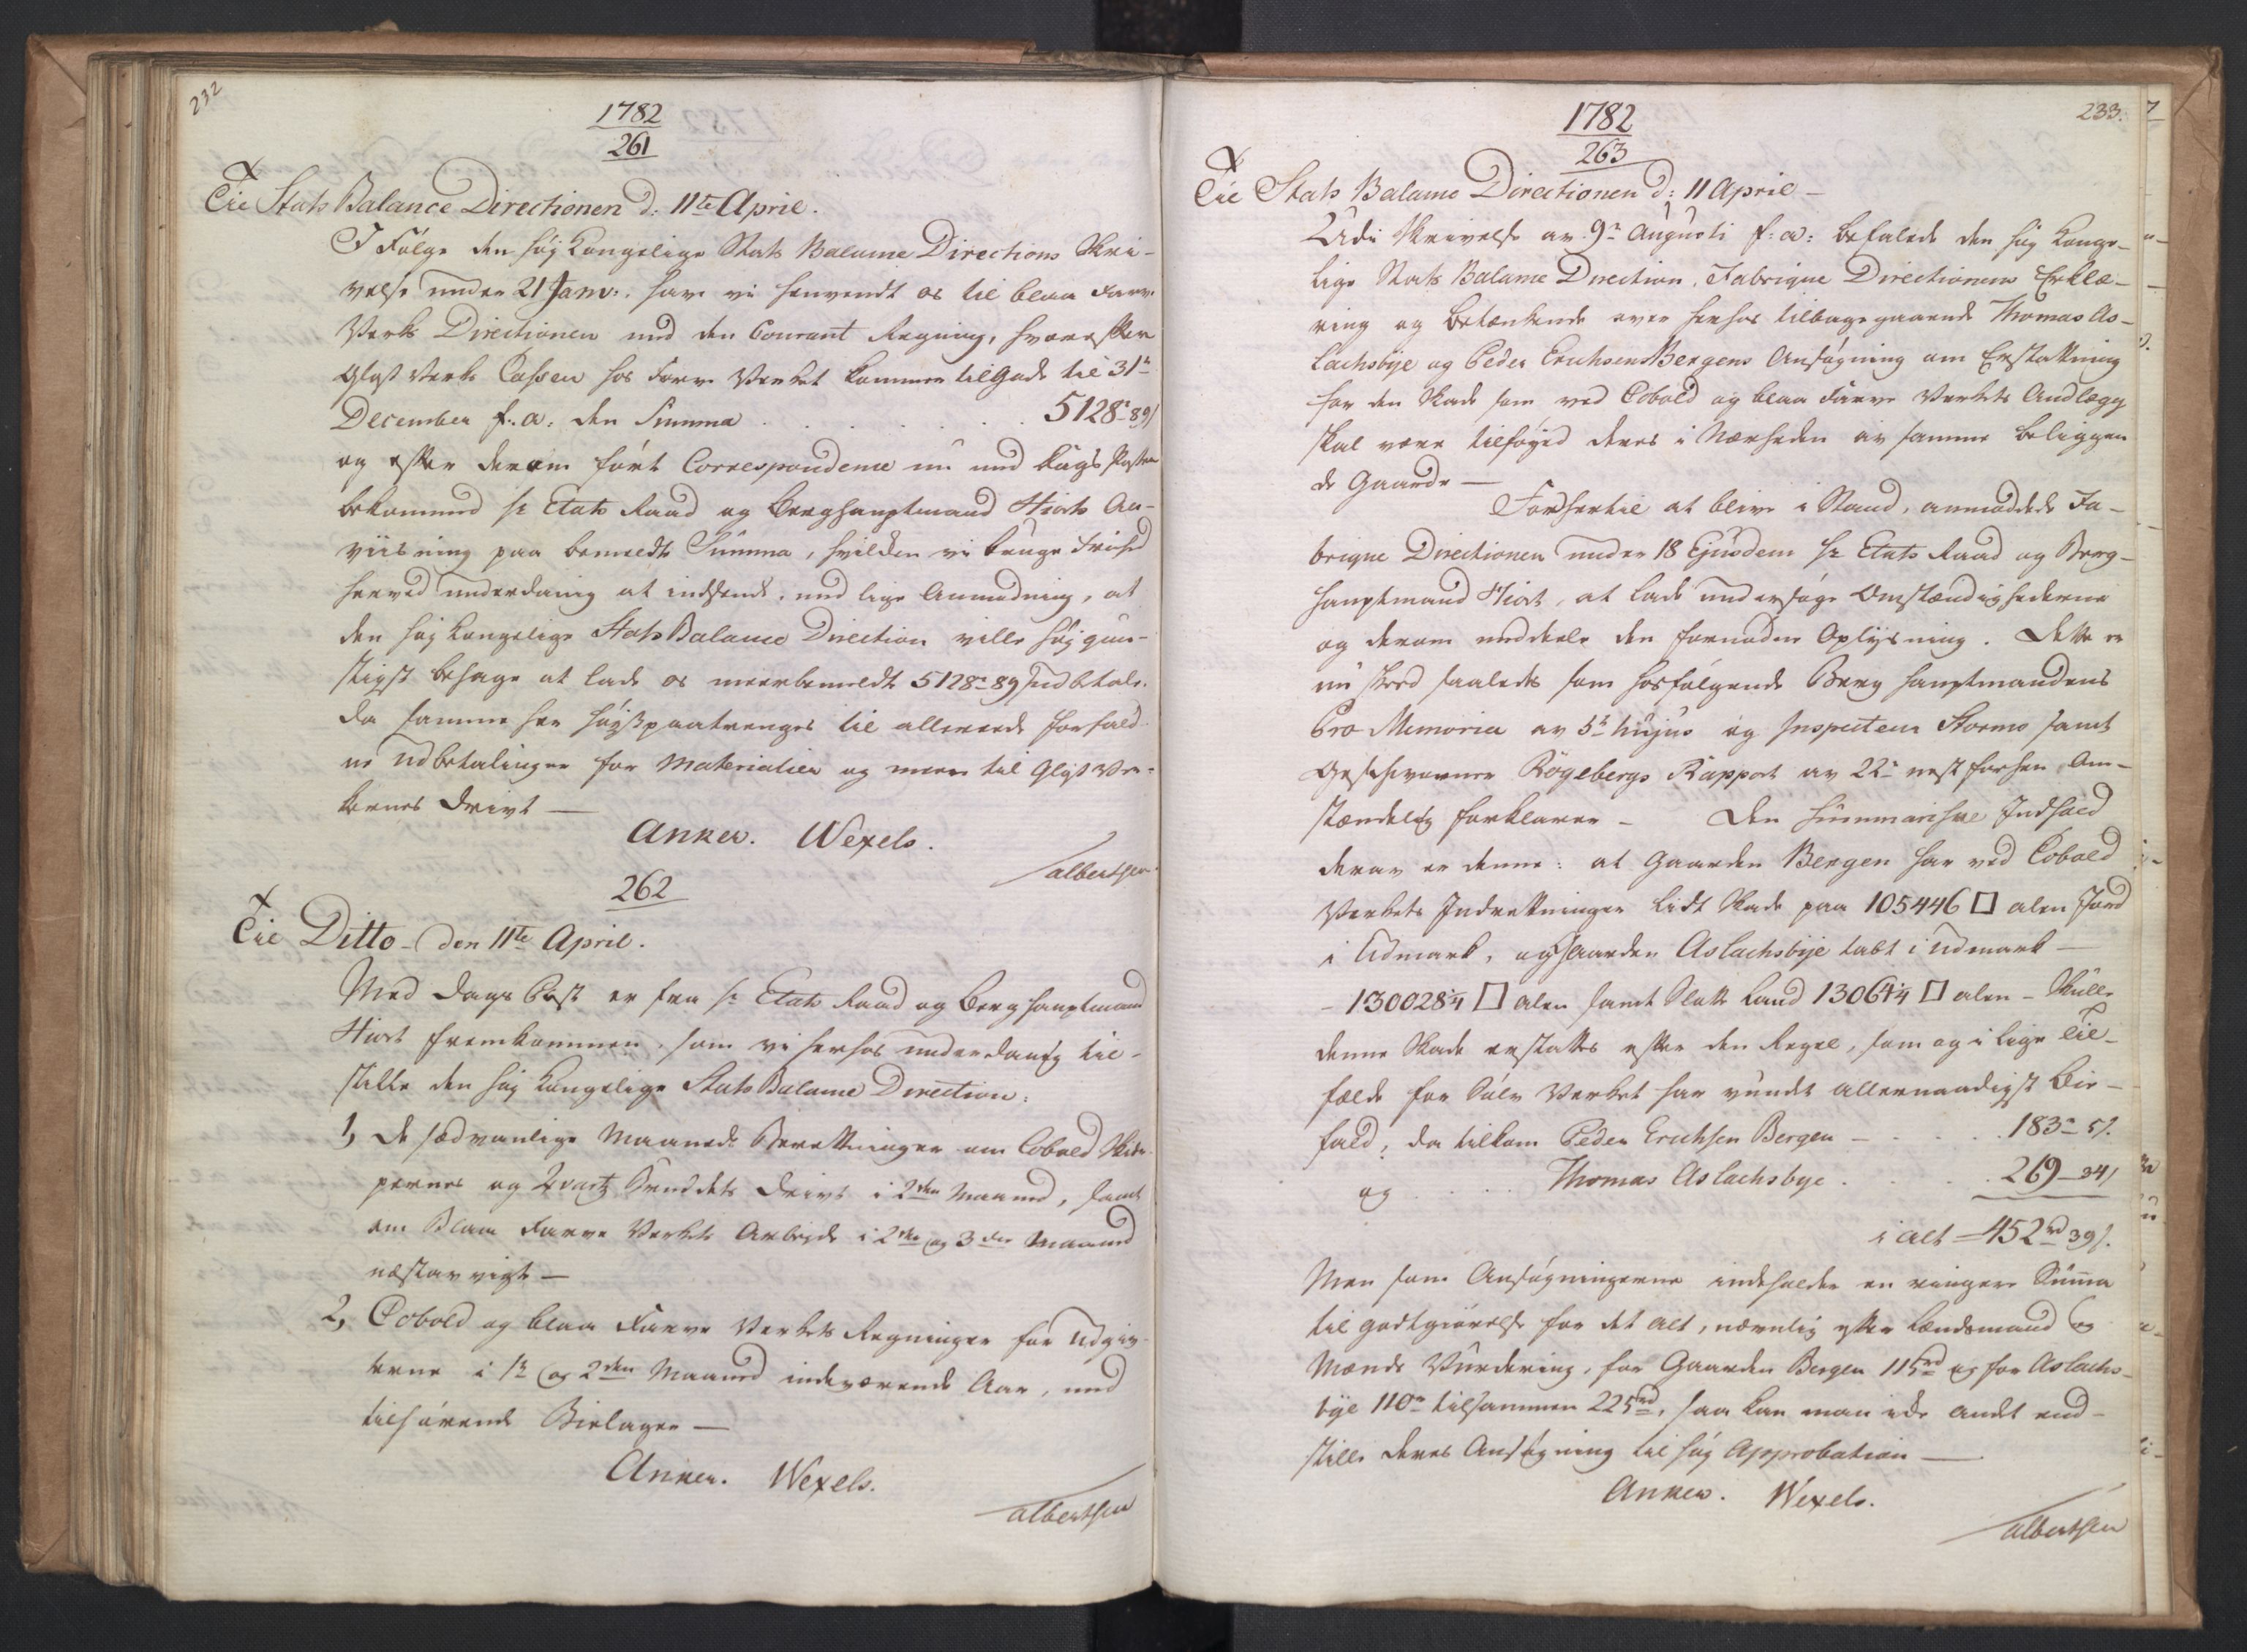 232
1782
261
Til Stats Balance Directionen d: 11te April.
I Følge den høj Kongelige Stats Balance Directions Skri-
velse under 21 Janv: have vi henvendt os til blaa Farve
Verks Directionen med den Courant Regning, hvorefter
Glas Verks Cassen hos Farve Verket kommer tilgode til 31te
December f: a: den Summa . . . . . . 5128r 89s
og efter derom ført Correspondence nu med Dags Posten
bekommed Hr Etats Raad og Berghauptmand Hiorts An-
viisning paa bemeldte Summa, hvilken vi tage Friehed
herved underdanig at indsende, med lige Anmodning, at
den høj Kongelige Stats Balance Direction ville høj gun-
stigst behage at lade os meerbemeldte 5128r 89s udbetale,
da samme her højst paatrænges til allerede forfald-
ne Udbetalinger for Materialier og meere til Glas Ver-
kernes Drivt —
Anker. Wexels.
Albertsen
262
Til Ditto - den 11te April.
Med Dags Post er fra Hr Etats Raad og Berghauptmand
Hiort fremkommen, som vi herhos underdanig til-
stille den høj Kongelige Stats Balance Direction:
1, De sædvanlige Maaneds Beretninger om Cobold Skiær-
pernes og Qvartz Bruddets Drivt i 2den Maaned, samt
om Blaa Farve Verkets Arbejde i 2den og 3die Maaned
næstavvigt —
2, Cobold og blaa Farve Verkets Regninger for Udgiv-
terne i 1te og 2den Maaned indeværende Aar, med
tilhørende Bielager —
Anker. Wexels.
Albertsen
233.
1782
263
Til Stats Balance Directionen d: 11 April —
Udi Skrivelse av 9de Augusti f: a: befalede den høj Konge-
lige Stats Balance Direction, Fabrique Directionens Erklæ-
ring og Betænkende over herhos tilbagegaaende Thomas As-
lachsbye og Peder Erichsen Bergens Ansøgning om Erstattning
for den Skade som ved Cobold og blaa Farve Verkets Anlægg
skal være tilføyed deres i Nærheden av samme beliggen
de Gaarde —
For hertil at blive i Stand, anmodede Fa-
brique Directionen under 18 Ejusdem Hr Etats Raad og Berg-
hauptmand Hiort, at lade undersøge Omstændighederne
og derom meddeele den fornødne Oplysning. Dette er
nu skeed saaledes som hosfølgende Berg hauptmandens
Pro Memoria av 5te hujus og Inspecteur Storms samt
Geschworner Bøgebergs Rapport av 22de nest forhen Om-
stændelig forklarer — Den Summariske Indhold
derav er denne: at Gaarden Bergen har ved Cobold
Verkets Indretninger lidt Skade paa 105446 □ alen Jord
i Udmark, og Gaarden Aslachsbye tabt i Udmark —
- 130028¼ □ alen samt Slatte Land 13064¼ □ alen - Skulle
denne Skade erstattes efter den Regel, som og i lige Til-
fælde for Sølv Verket har vundet allernaadigst Bie-
fald, da tilkom Peder Erichsen Bergen — . . . 183r 5s.
og . . . Thomas Aslachsbye . . . 269 - 34s
i alt = 452rd 39s.
Men som Ansøgningerne indeholder en ringere Summa
til godtgiørelse for det alt, nemlig efter Lændsmand og
Mænds Vurdering, for Gaarden Bergen 115rd og for Aslachs-
bye 110r tilsammen 225rd, saa kan man icke andet end
stille deres Ansøgning til høj Approbation —
Anker. Wexels.
Albertsen